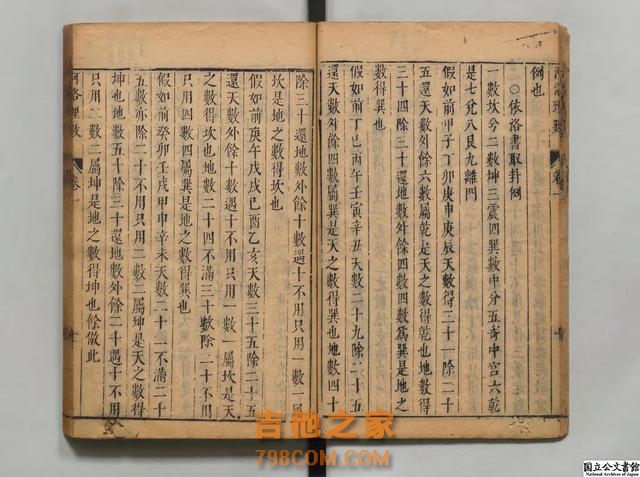 例也
○依洛書取卦例
一數坎兮二數坤三震四巽數中分五寄中宮六乾
是七兌八艮九離門
假如前甲子丁卯庚申庚辰天數得三十一除二十
五還天數外餘六數屬乾是天之數得乾也地數得
三十四除三十還地數外餘四數四數為巽是地之
數得巽也
假如前丁巳丙午壬寅辛丑天數二十九除二十五
還天數外餘四數四屬巽是天之數得巽也地數四十
除三十還地數外餘十數遇十不用只用一數一屬
坎是地之數得坎也
假如前庚午戊戌己酉乙亥天數三十五除二十五
還天數外餘十數遇十不用只用一數一屬坎是天
之數得坎也地數二十四不滿三十數除二十不用
只用四數四屬巽是地之數得巽也
假如前癸卯壬戌甲申辛未天數二十二不滿二十
五數亦除二十不用只用二數二屬坤是天之數得
坤也地數五十除三十還地數外餘二十遇十不用
只用二數二屬坤是地之數得坤也餘倣此
河洛理數
卷一
十
吉他之家
798COM.COM
国立公文書館
National Archives of Japan